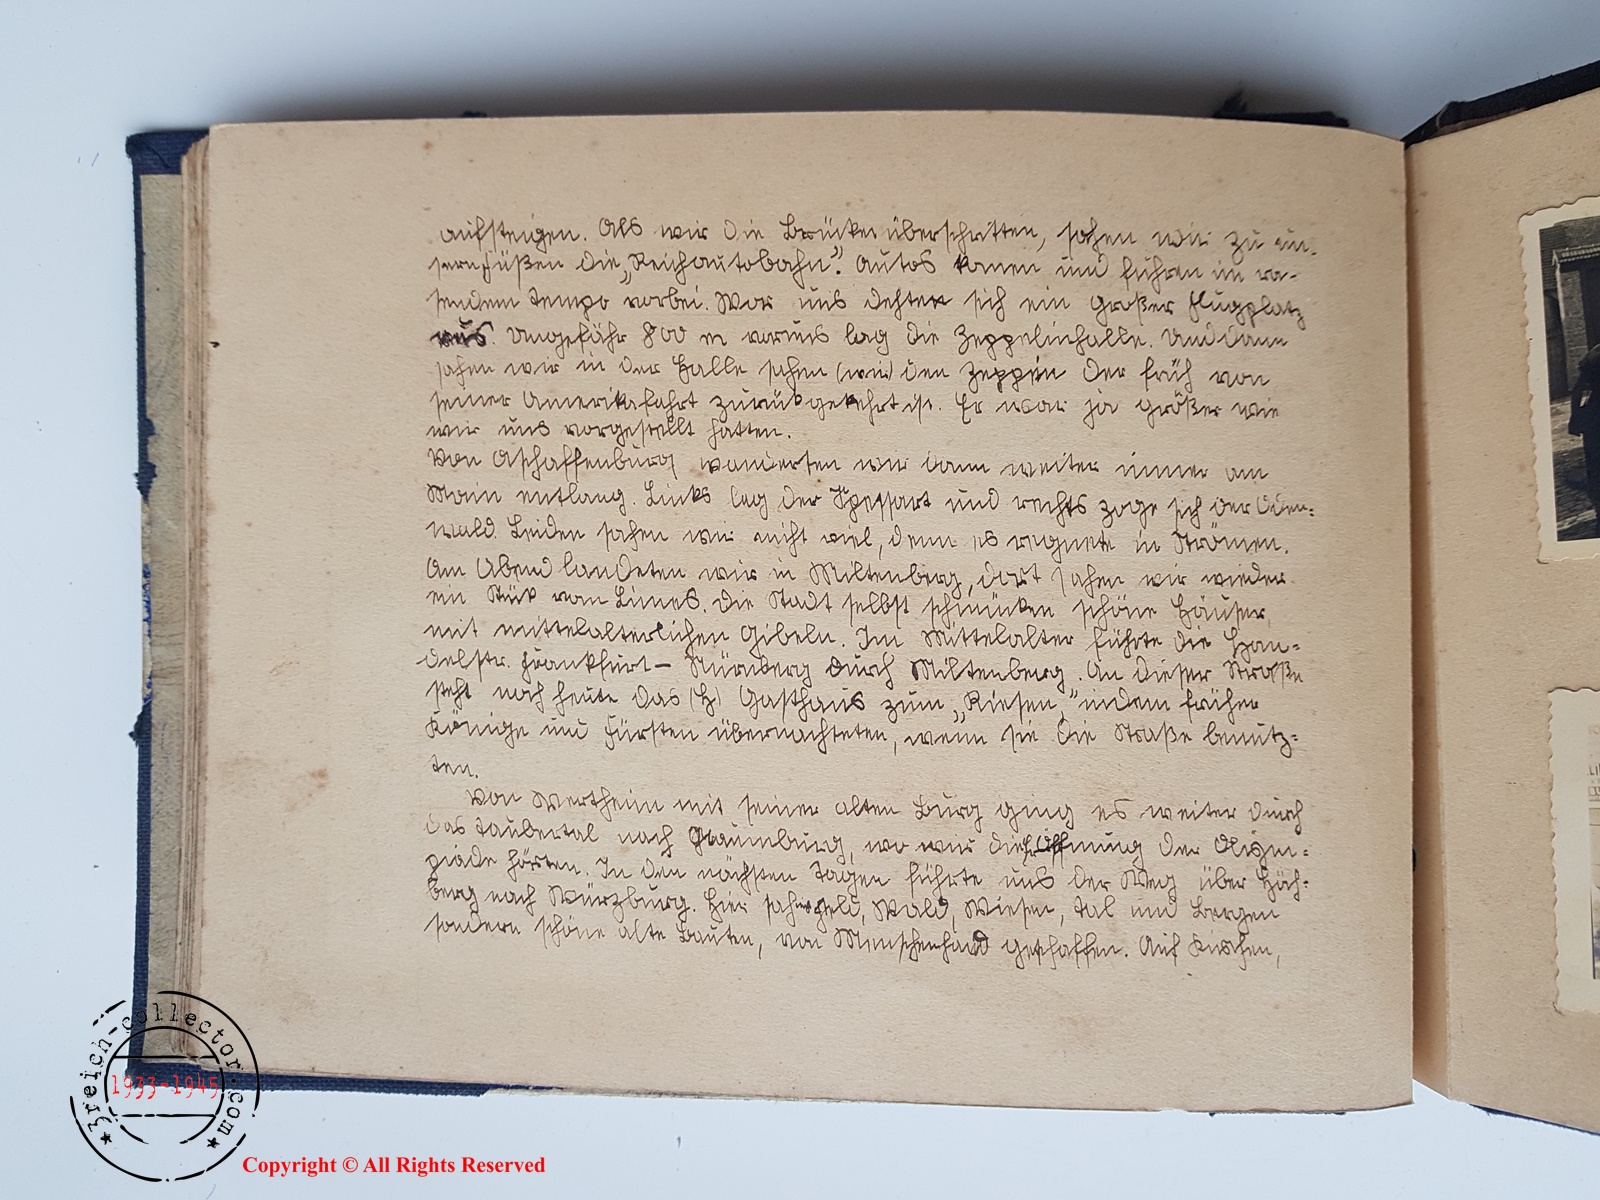 aufsteigen. Als wir die Brücke überschritten, sahen wir zu un-
sern Füßen die „Reichautobahn". Autos kamen und fuhren im ra-
sendem Tempo vorbei. Vor uns dehten sich ein Großer Flugplatz
aus. Ungefähr 800 m voruns lag die Zeppelinhalle. Und dann
sahen wir in der Halle sahen (wir) den Zeppin der früh von
seiner Amerikafahrt zurükgekehrt ist. Er war ja größer wie
wir uns vorgestellt hatten.
Von Aschaffenburg wanderten wir dann weiter immer am
Main entlang. Links lag der Spessart und rechts zoge sich der Oden=
wald. Leider sahen wir nicht viel, denn es regnete in Strömen.
Am Abend landeten wir in Miltenberg, dort sahen wir wieder
ein Stük vom Limes. Die Stadt selbst schmücken schöne Häuser,
mit mittelalterlichen Gibeln. Im Mittelalter führte die Han=
delstr. Frankfurt – Nürnberg durch Miltenberg. An dieser Straße
steht noch heute das (H) Gasthaus zum „Riesen," indem früher
Könige und Fürsten übernachteten, wenn sie die Straße benutz=
ten.
Von Wertheim mit seiner alten Burg ging es weiter durch
das Taubertal nach Gaumburg, wo wir die Eröffnung der Olism=
piade hörten. In den nächsten Tagen führte uns der Weg über Höch=
berg nach Würzburg. Hier sahen Feld, Wald, Wiesen, Tal und Bergen
sondern schöne alte Bauten, von Menschenhand geschaffen. Auf Kirchen,
3reich-collector.com
1933-1945
Copyright © All Rights Reserved